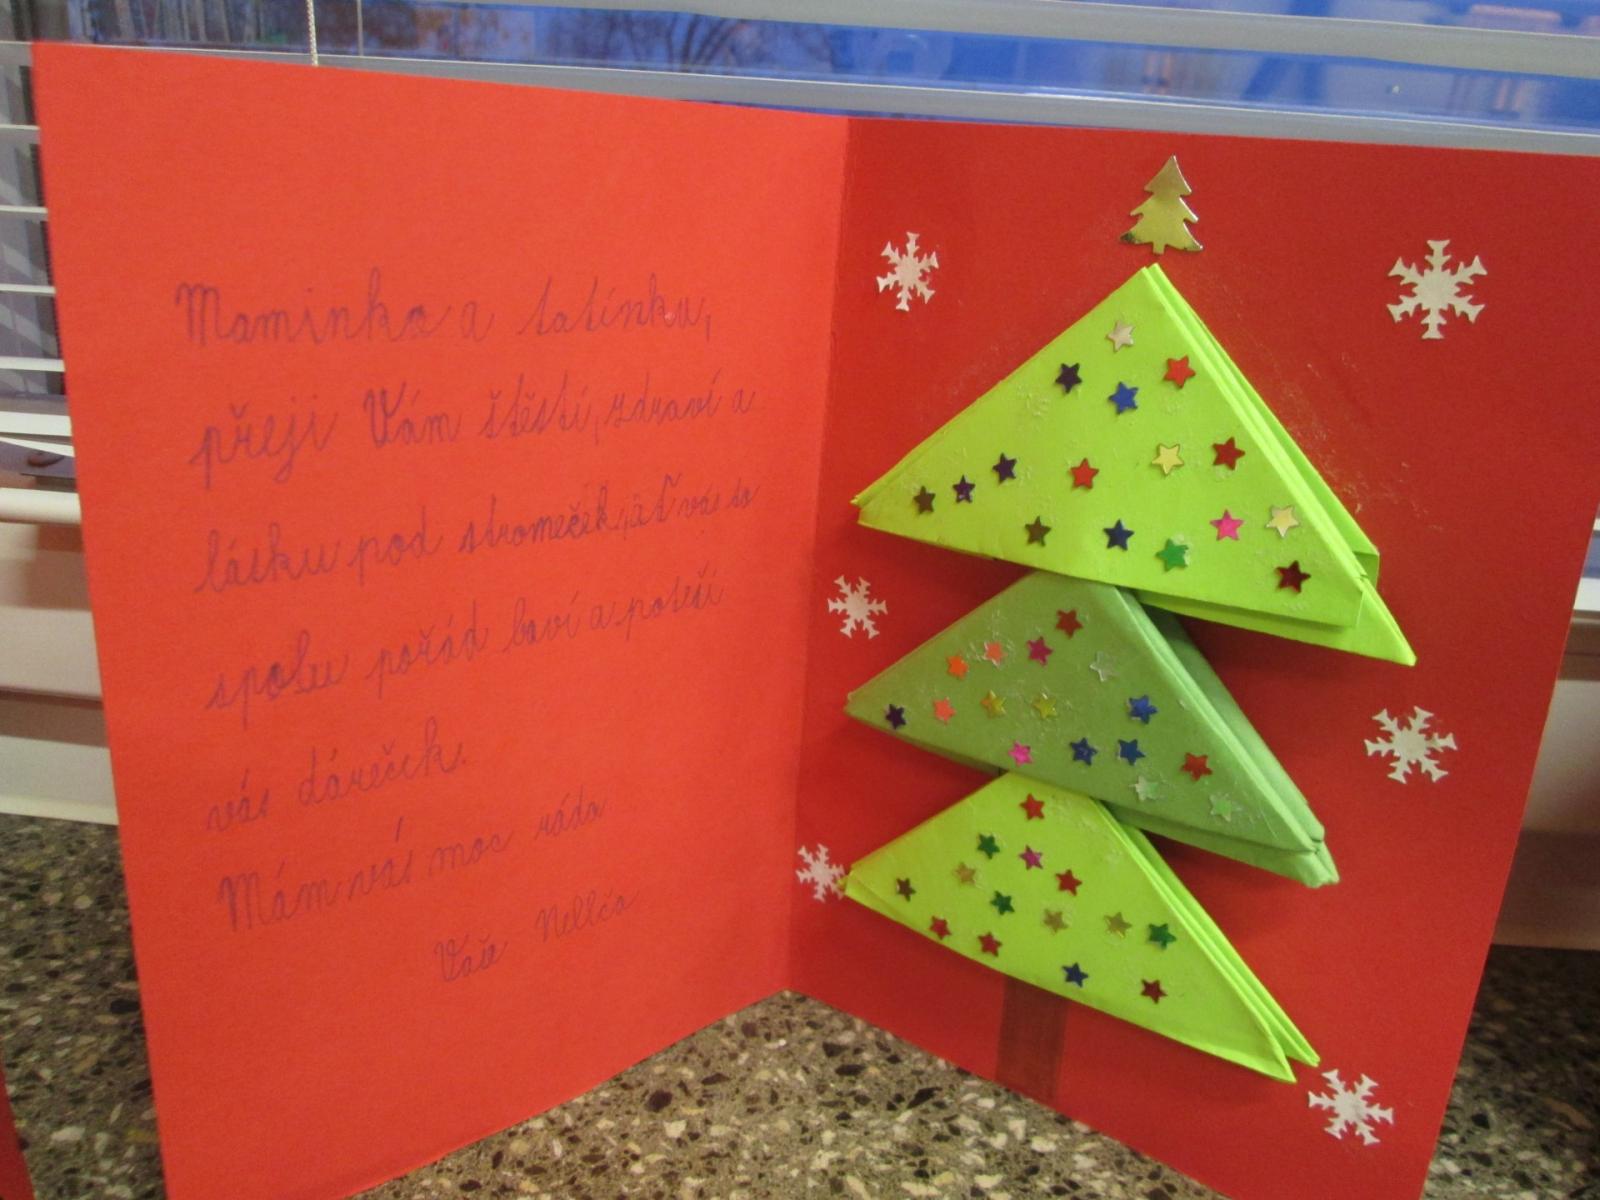 Maminko a tatínku,
přeji Vám štěstí, zdraví a
lásku pod stromeček, ať vás to
spolu pořád baví a potěší
vás dáreček.
Mám vás moc ráda
Vaše Nellča